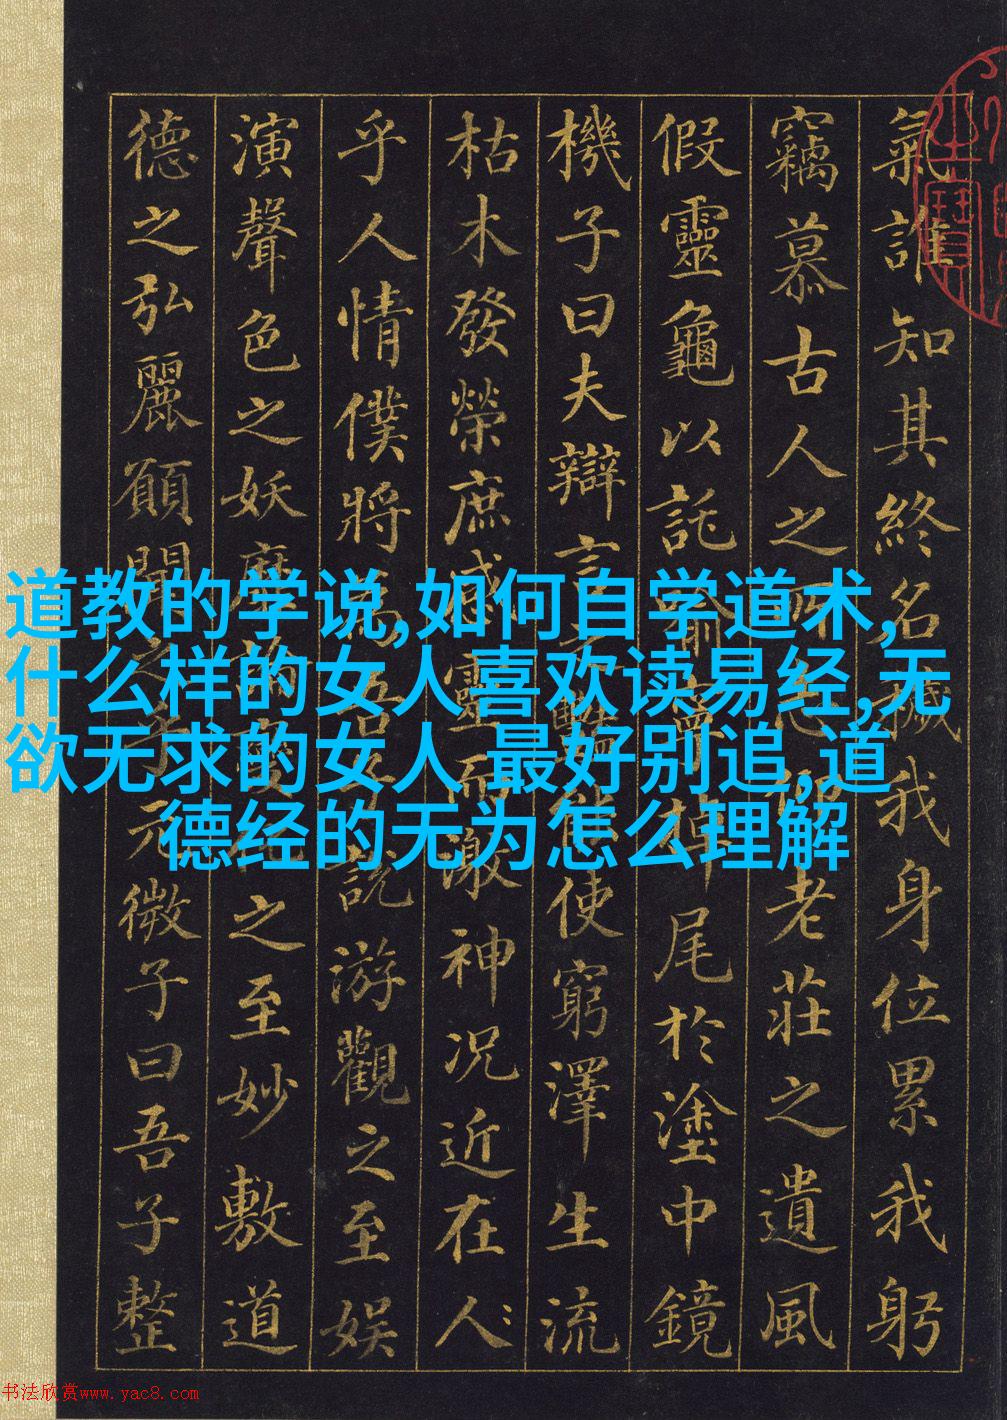 氣誰知其終名穢我身位累我躬
竊慕古人之所志仰老莊之遺風
假靈龜以託喻寧掉尾於塗中鏡
機子曰夫辯言之艷能使窮澤生流
枯木發榮庶感靈而激神況近在人
乎人情僕將為吾子說游觀之至娛
演聲色之妖靡論變化之至妙敷道
德之弘麗願聞之乎玄微子曰吾子整
道教的学说,如何自学道术,
什么样的女人喜欢读易经,无
欲无求的女人 最好别追,道
德经的无为怎么理解
书法欣赏www.yac8.com